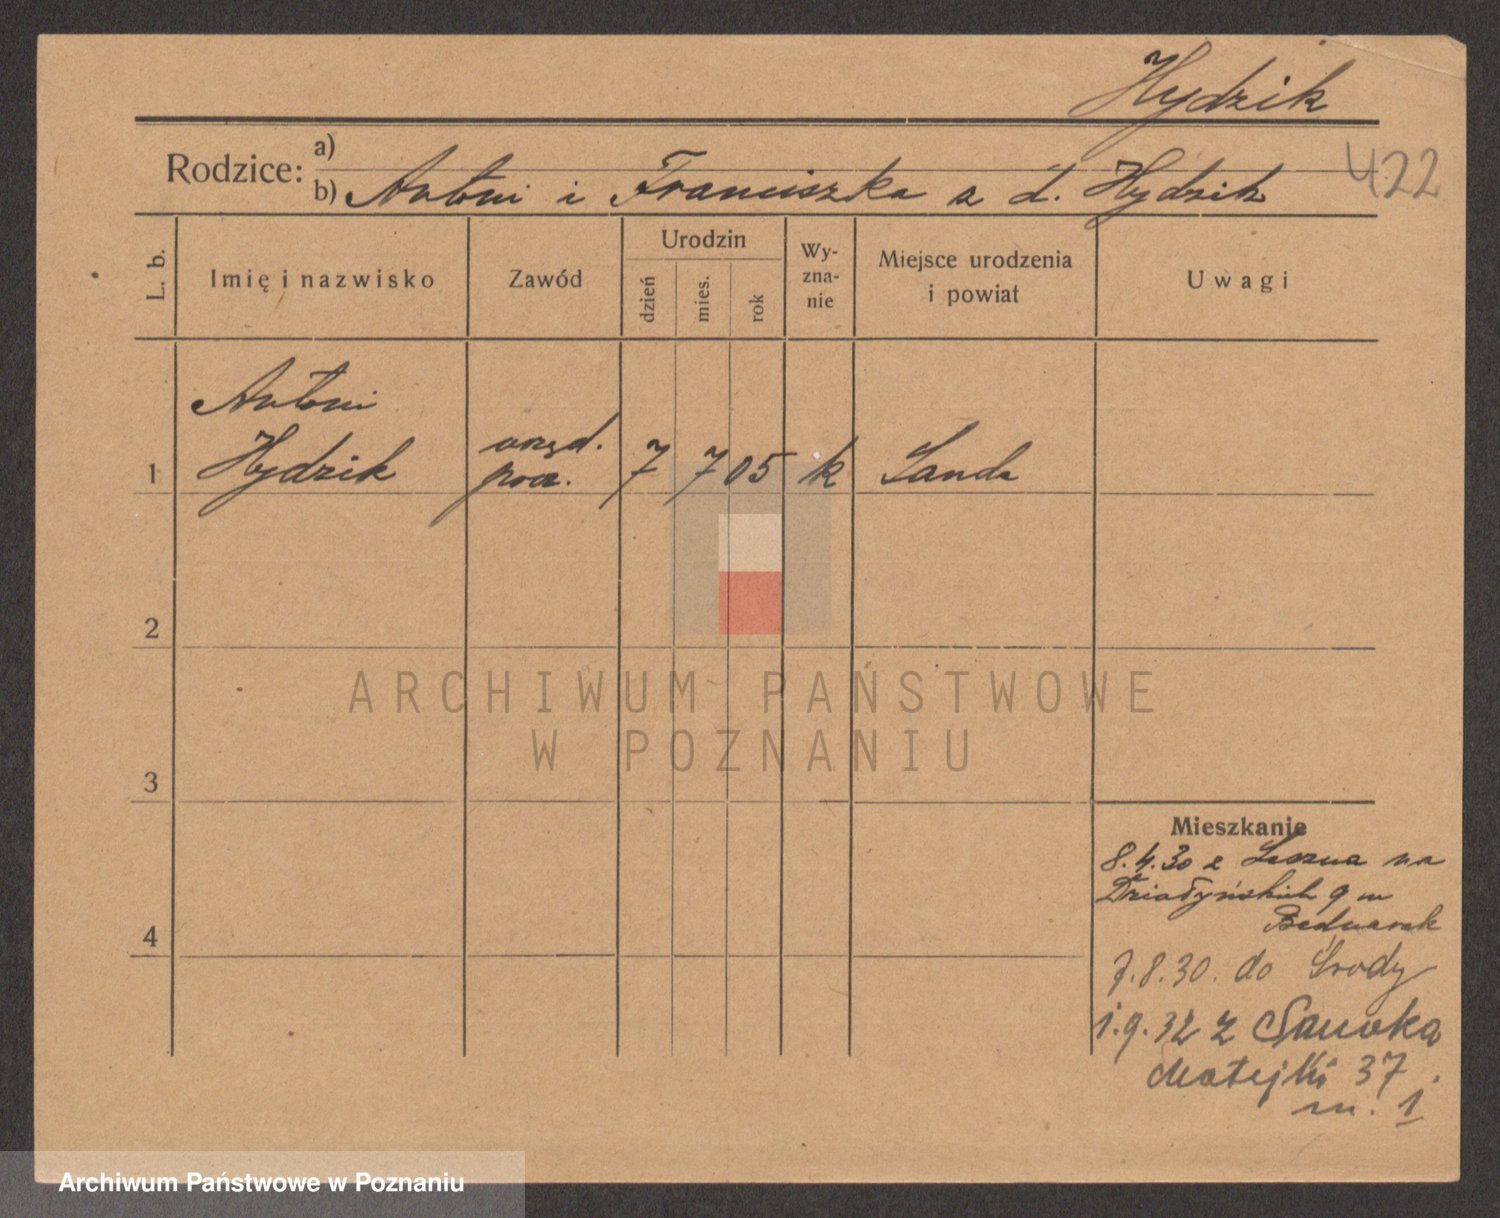 Hydzik
422
Rodzice:
a)
b) Antoni i Franciszka z d. Hydzik
L. b.
Imię i nazwisko
Zawód
Urodzin
dzień
mies.
rok
Wy-
zna-
nie
Miejsce urodzenia
i powiat
Uwagi
Antoni
1 Hydzik
urzęd.
pocz.
7 7 05 k Landa
2
3
4
Mieszkanie
8.4.30 z Leszna na
Działyńskich 9 m
Bednarek
7.8.30. do Środy
1.9.32 z
Matejki 37
m. 1
ARCHIWUM PAŃSTWOWE
W POZNANIU
Archiwum Państwowe w Poznaniu